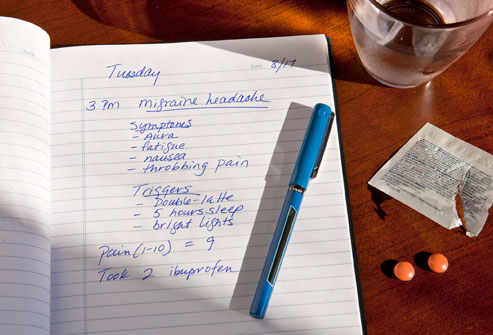 Tuesday
Date 8/17
3 PM migraine headache
Symptomes
- Aura
- fatigue
- nausea
- throbbing pain
Triggers
- Double-latte
- 5 hours sleep
- bright lights
Pain (1-10) = 9
Took 2 ibuprofen